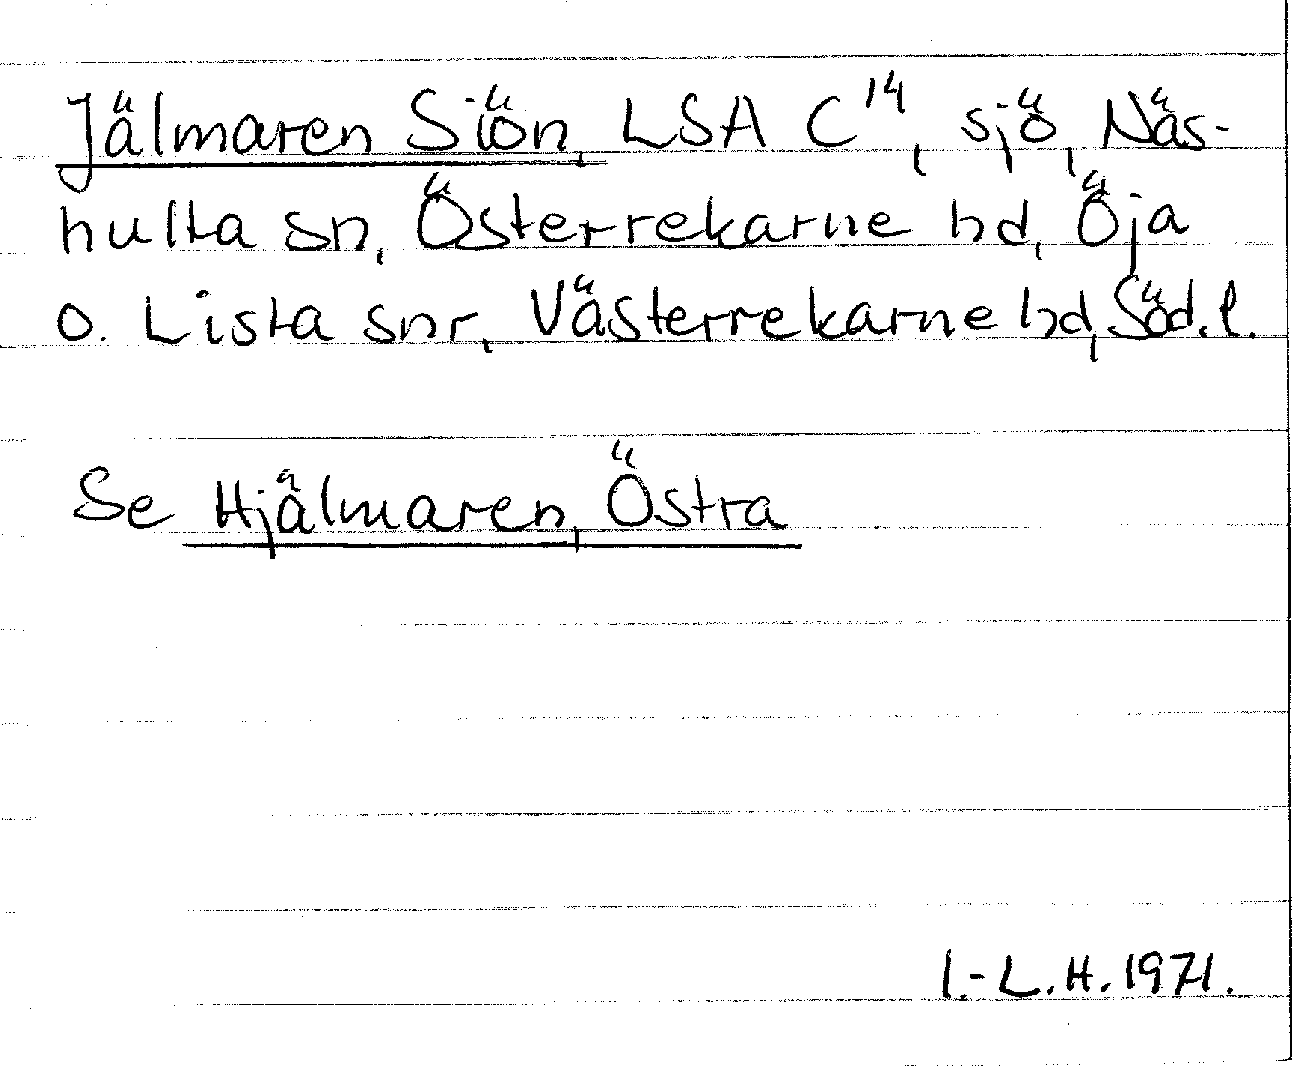 Jälmaren Siön, LSA C14, sjö, Näs-
hulta sn, Österrekarne hd, Öja
o. Lista snr, Västerrekarne hd, Söd.l.
Se Hjälmaren, Östra
I.-L.H.1971.